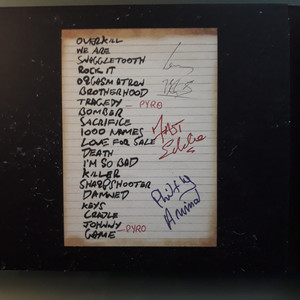 OVERKILL
WE ARE
SNAGGLETOOTH
ROCK IT
ORGASMATRON
BROTHERHOOD
TRAGEDY _ PYRO
BOMBER
SACRIFICE
1000 NAMES
LOVE FOR SALE
DEATH
I'M SO BAD
KILLER
SHARPSHOOTER
DAMNED
KEYS
CRADLE
JOHNNY _ PYRO
GAME
FAST
Eddie
Philthy
Animal